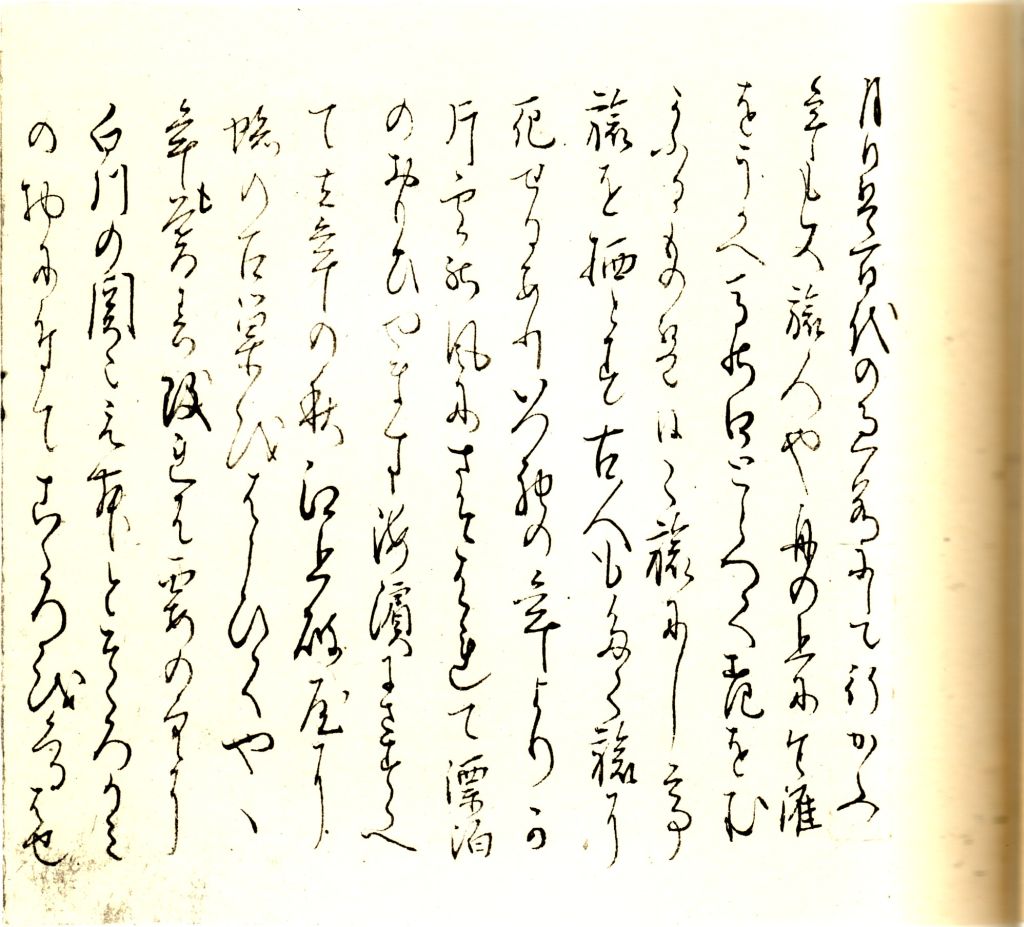 月日は百代の過客にして行かふ
年も又旅人や舟の上に生涯
をうかへ馬の口とらへて老を
むかふるものは日々旅にして
旅を栖とす古人も多く旅に
死せるありいつれの年よりか
片雲の風にさそはれて漂泊
のおもひやます海濱にさすらへ
て去年の秋江上の破屋に
蜘の古巣をはらひてやゝ
年も暮春改れは霞の空に
白川の関こえむとそゝろかみ
の物に付てこゝろをくるはせ